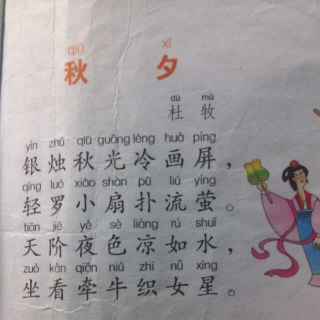 qiū xī
秋 夕
dù mù
杜 牧
yín zhú qiū guāng lěng huà píng
银烛秋光冷画屏，
qīng luó xiǎo shàn pū liú yíng
轻罗小扇扑流萤。
tiān jiē yè sè liáng rú shuǐ
天阶夜色凉如水，
zuò kàn qiān niú zhī nǚ xīng
坐看牵牛织女星。